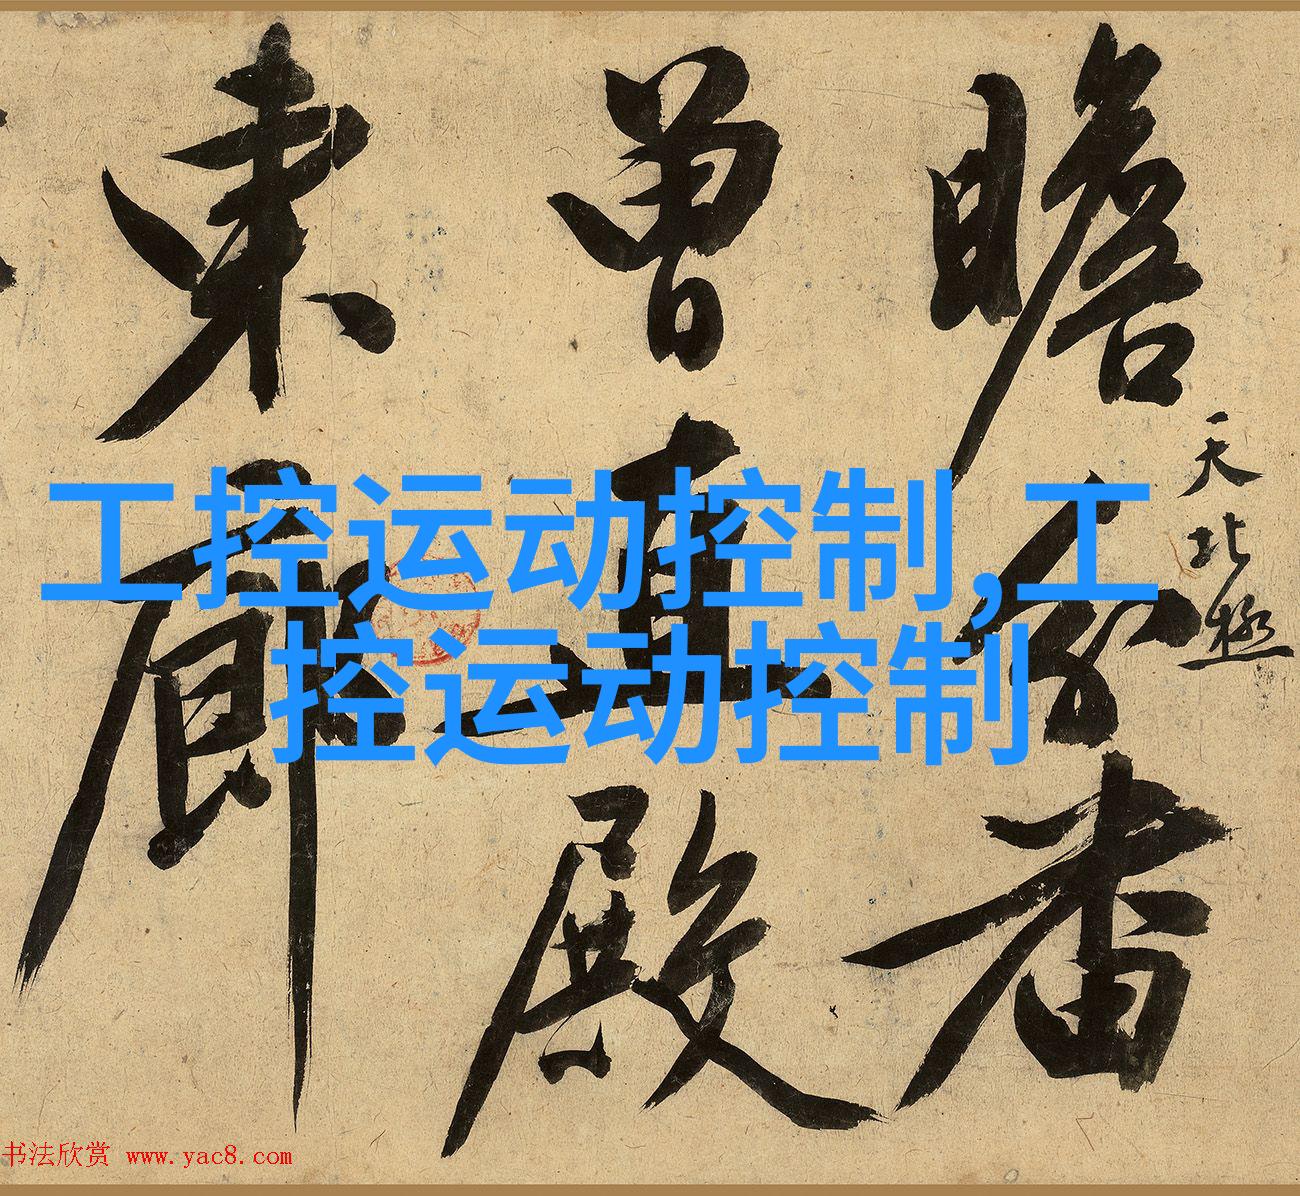 瞻者
天北極
曾直殿
東廊
工控运动控制,工
控运动控制
书法欣赏 www.yac8.com